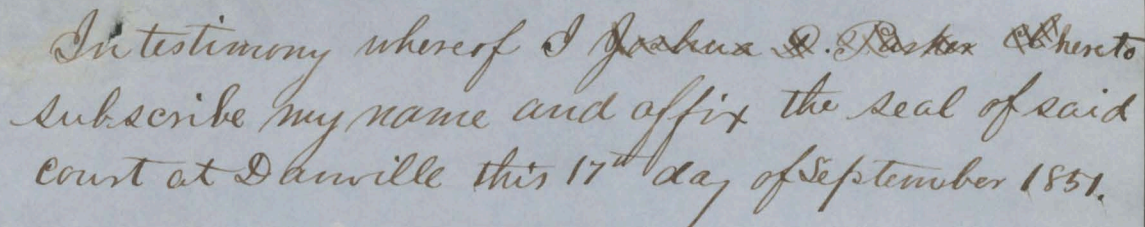 In testimony whereof I Joshua D. Parker hereto
subscribe my name and affix the seal of said
court at Danville this 17th day of September 1851.